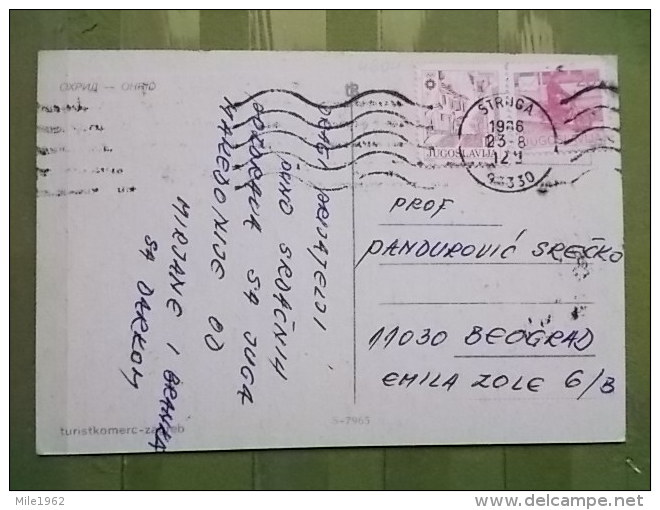 ОХРИД — OHRID
DRAGI PRIJATELJI
PUNO SRDAČNIH
POZDRAVA SA JUGA
MAKEDONIJE OD
MIRJANE I BRANKA
SA DARKOM
JUGOSLAVIJA
JUGOSLAVIJA
STRUGA
1986
23-8
12
91330
PROF
PANDUROVIĆ SREČKO
11030 BEOGRAD
EMILA ZOLE 6/B
turistkomerc-zagreb
s-7965
Mile1962
delcampe.net